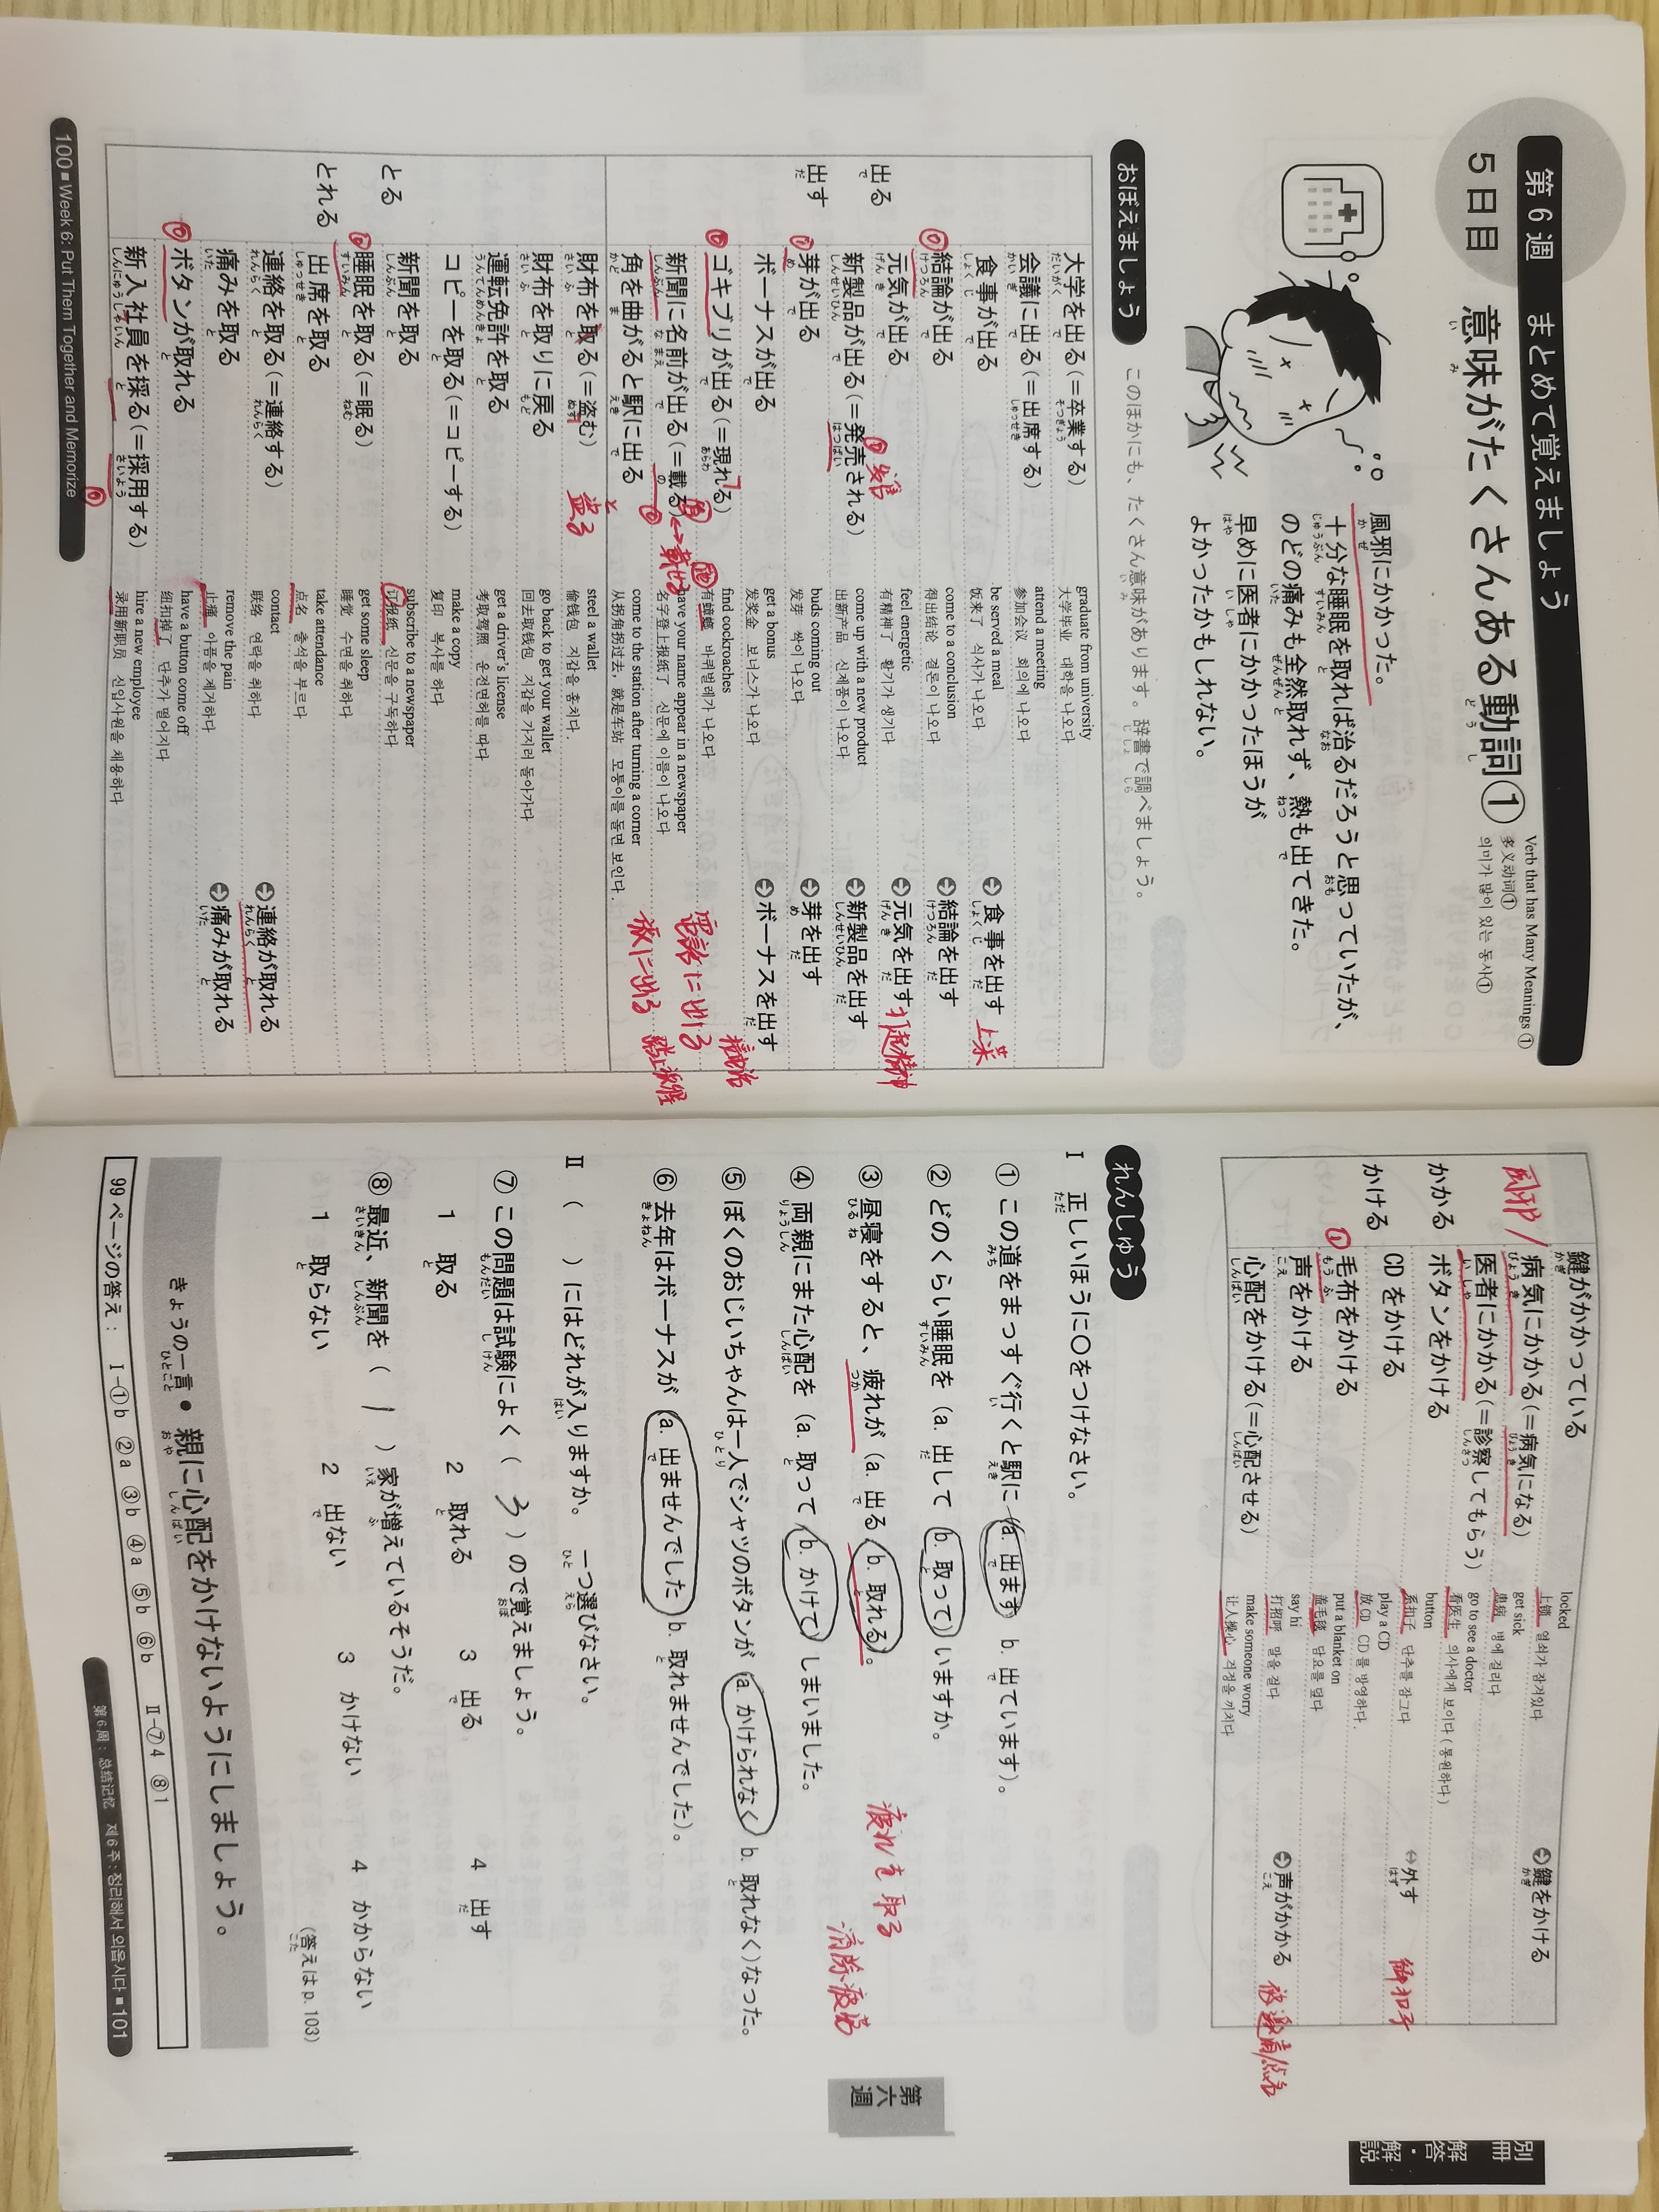 第6週 まとめて覚えましょう
5日目 意味がたくさんある動詞①
Verb that has Many Meanings ①
多义动词①
의미가 많이 있는 동사①
風邪にかかった。
十分な睡眠を取れば治るだろうと思っていたが、
のどの痛みも全然取れず、熱も出てきた。
早めに医者にかかったほうが
よかったかもしれない。
おぼえましょう このほかにも、たくさん意味があります。辞書で調べましょう。
出る
出す
大学を出る(=卒業する) graduate from university
大学毕业 대학을 나오다
会議に出る(=出席する) attend a meeting
参加会议 회의에 나오다
食事が出る be served a meal
饭来了 식사가 나오다 食事を出す 上菜
結論が出る come to a conclusion
得出结论 결론이 나오다 結論を出す
元気が出る feel energetic
有精神了 활기가 생기다 元気を出す 打起精神
新製品が出る(=発売される) 発售 come up with a new product
出新产品 신제품이 나오다 新製品を出す
芽が出る buds coming out
发芽 싹이 나오다 芽を出す
ボーナスが出る get a bonus
发奖金 보너스가 나오다 ボーナスを出す
ゴキブリが出る(=現れる) find cockroaches
有蟑螂 바퀴벌레가 나오다 電話に出る 接电话
新聞に名前が出る(=載る) ↔載せる have your name appear in a newspaper
名字登上报纸了 신문에 이름이 나오다
角を曲がると駅に出る come to the station after turning a corner
从拐角拐过去，就是车站 모퉁이를 돌면 보인다. 旅に出る 踏上旅程
とる
とれる
財布を取る(=盗む) 盗る steel a wallet
偷钱包 지갑을 훔치다.
財布を取りに戻る go back to get your wallet
回去取钱包 지갑을 가지러 돌아가다
運転免許を取る get a driver's license
考取驾照 운전면허를 따다
コピーを取る(=コピーする) make a copy
复印 복사를 하다
新聞を取る subscribe to a newspaper
订报纸 신문을 구독하다
睡眠を取る(=眠る) get some sleep
睡觉 수면을 취하다
出席を取る take attendance
点名 출석을 부르다
連絡を取る(=連絡する) contact
联络 연락을 취하다 連絡が取れる
痛みを取る remove the pain
止痛 아픔을 제거하다 痛みが取れる
ボタンが取れる have a button come off
纽扣掉了 단추가 떨어지다
新入社員を採る(=採用する) hire a new employee
录用新职员 신입사원을 채용하다
100 ■ Week 6: Put Them Together and Memorize
風邪/
かかる
かける
鍵がかかっている locked
上锁 열쇠가 잠겨있다 鍵をかける
病気にかかる(=病気になる) get sick
患病 병에 걸리다
医者にかかる(=診察してもらう) go to see a doctor
看医生 의사에게 보이다(통원하다)
ボタンをかける button
系扣子 단추를 잠그다 ⇔外す 解扣子
CDをかける play a CD
放CD CD를 방영하다.
毛布をかける put a blanket on
盖毛毯 담요를 덮다
声をかける say hi
打招呼 말을 걸다 声がかかる 被邀请/点名
心配をかける(=心配させる) make someone worry
让人操心 걱정을 끼치다
れんしゅう
Ⅰ 正しいほうに○をつけなさい。
① この道をまっすぐ行くと駅に(a. 出ます b. 出ています)。
② どのくらい睡眠を(a. 出して b. 取って)いますか。
③ 昼寝をすると、疲れが(a. 出る b. 取れる)。 疲れを取る 消除疲劳
④ 両親にまた心配を(a. 取って b. かけて)しまいました。
⑤ ぼくのおじいちゃんは一人でシャツのボタンが(a. かけられなく b. 取れなく)なった。
⑥ 去年はボーナスが(a. 出ませんでした b. 取れませんでした)。
Ⅱ ( )にはどれが入りますか。一つ選びなさい。
⑦ この問題は試験によく( 3 )ので覚えましょう。
1 取る 2 取れる 3 出る 4 出す
⑧ 最近、新聞を( 1 )家が増えているそうだ。
1 取らない 2 出ない 3 かけない 4 かからない
(答えは p. 103)
きょうの一言 ● 親に心配をかけないようにしましょう。
99ページの答え： Ⅰ-①b ②a ③b ④a ⑤b ⑥b Ⅱ-⑦4 ⑧1
第6周：总结记忆 제6주:정리해서 외웁시다 ■ 101
第六週
別冊
解答・解説